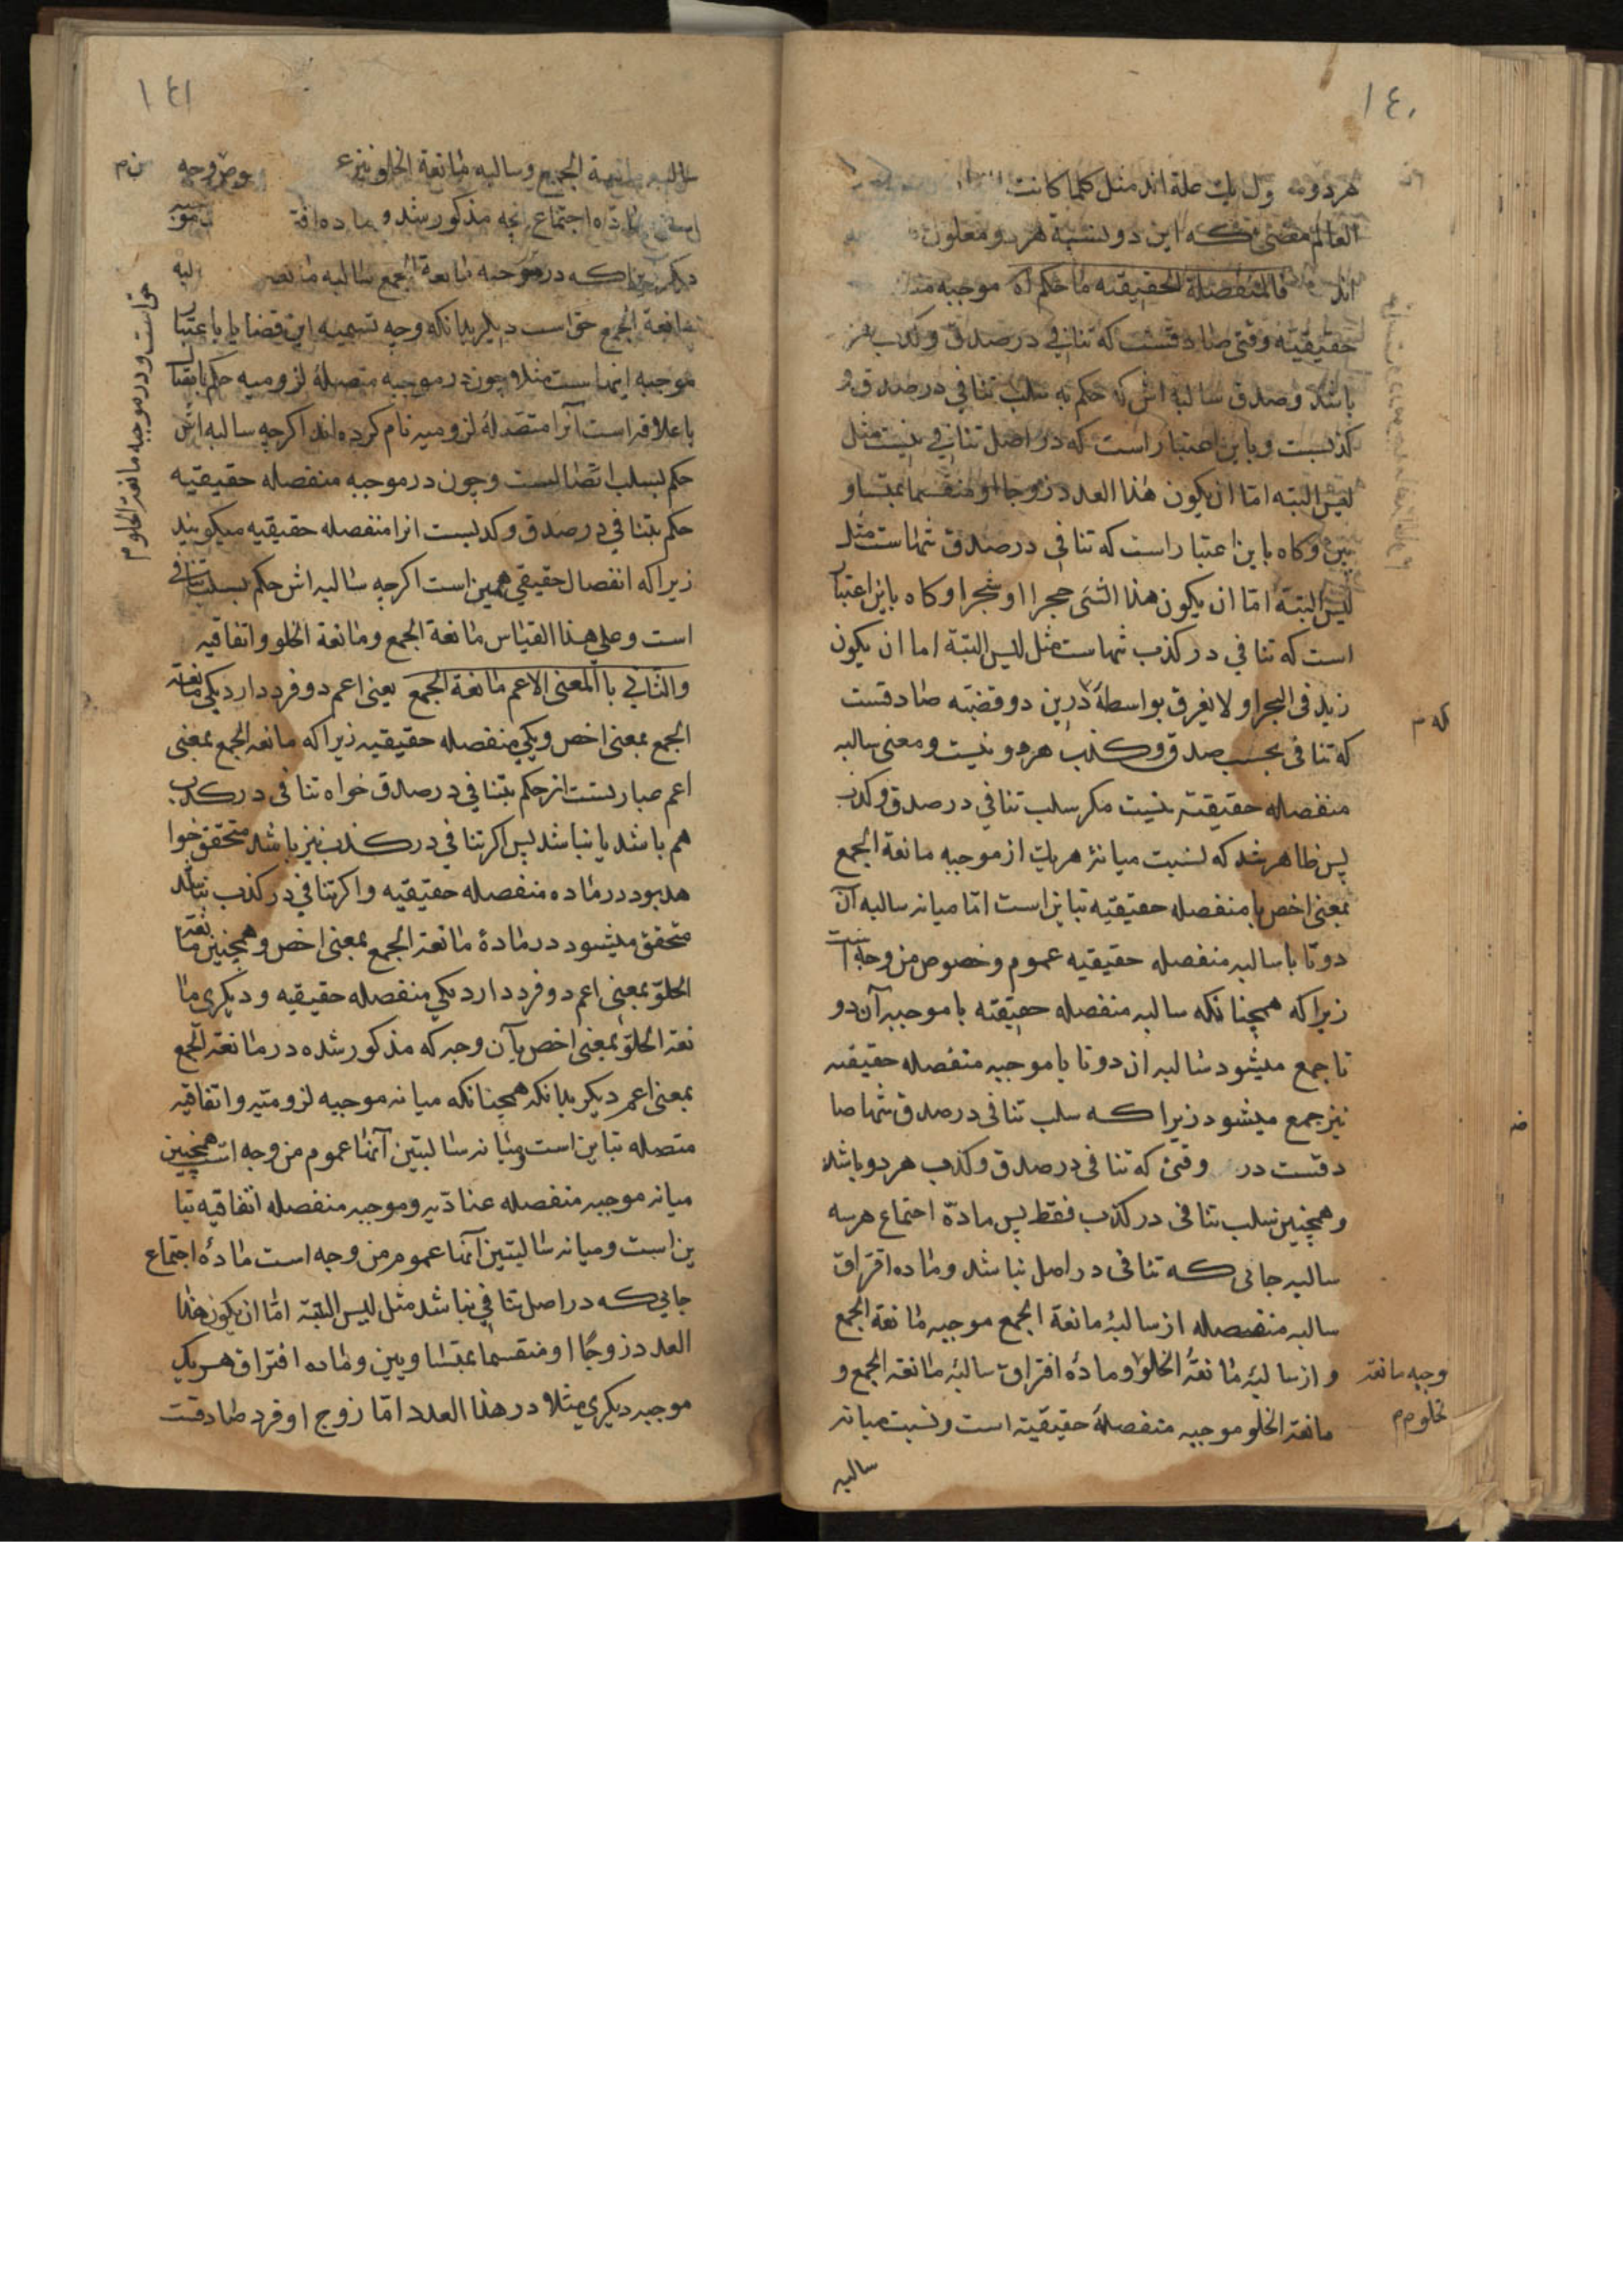 ١٤٠
هر دو مه ول یک علة اند مثل کلما کانت
العالم مضئ که این دو نسبة هر دو معلول
اند فالمنفصلة الحقیقیه ما حکم اه موجبه
حقیقیه وقتی صادقست که تنافی در صدق وکذب هر
باشد وصدق سالبه اش که حکم به سلب تنافی در صدق و
کذبست وباین اعتبار است که در اصل تنافی نیست مثل
لیس البته اما ان یکون هذا العدد زوجا او منقسما بمتساو
یین وکاه باین اعتبار است که تنافی در صدق تنهاست مثل
لیس البتة اما ان یکون هذا الشئ حجرا او شجرا وکاه باین اعتبار
است که تنافی در کذب تنهاست مثل لیس البتة اما ان یکون
زید فی البحر او لا یغرق بواسطهٔ درین دو قضیه صادقست
که تنافی بحسب صدق وکذب هر دو نیست ومعنی سالبه
که م
منفصله حقیقیه نیست مکر سلب تنافی در صدق وکذب
پس ظاهر شد که نسبت میانهٔ هر یک از موجبه مانعة الجمع
بمعنی اخص با منفصله حقیقیه تباین است اما میانه سالبه آن
دوتا با سالبه منفصله حقیقیه عموم وخصوص من وجه است
زیرا که همچنانکه سالبه منفصله حقیقیه با موجبه آن دو
تا جمع میشود سالبه ان دوتا با موجبه منفصله حقیقیه
نیز جمع میشود زیرا که سلب تنافی در صدق تنها صا
دقست در وقتی که تنافی در صدق وکذب هر دو باشد
وهمچنین سلب تنافی در کذب فقط پس مادّه اجتماع هر سه
سالبه جائی که تنافی در اصل نباشد وماده افتراق
سالبه منفصله از سالبهٔ مانعة الجمع موجبه مانعة الجمع
و از سالبهٔ مانعة الخلو ومادهٔ افتراق سالبهٔ مانعة الجمع و
وجبه مانعة
لخلو م م
مانعة الخلو موجبه منفصلهٔ حقیقیه است ونسبت میانه
سالبه
١٤١
سالبه مانعة الجمع وسالبه مانعة الخلو نیز ع
مادّه اجتماع انچه مذکور شد و ماده افت
دیکر که در موجبه مانعة الجمع سالبه مانعه
مانعة الجمع حق است دیکر بدانکه وجه تسمیه این قضایا باعتبار
حق است ودر موجبه مانعة الخلو م
موجبه اینهاست مثلا چون در موجبه متصلهٔ لزومیه حکم باتصال
باعلاقه است آنرا متصلهٔ لزومیه نام کرده اند اکرچه سالبه اش
حکم بسلب اتصالست وچون در موجبه منفصله حقیقیه
حکم بتنافی در صدق وکذبست انرا منفصله حقیقیه میکویند
زیرا که انفصال حقیقی همین است اکرچه سالبه اش حکم بسلب تنافی
است وعلی هذا القیاس مانعة الجمع ومانعة الخلو واتفاقیه
والثانی با المعنی الاعم مانعة الجمع یعنی اعم دو فرد دارد یکی مانعة
الجمع بمعنی اخص ویکی منفصله حقیقیه زیرا که مانعة الجمع بمعنی
اعم عبارتست از حکم بتنافی در صدق خواه تنافی در کذب
هم باشد یا نباشد پس اکر تنافی در کذب نیز باشد متحقق خوا
هد بود در ماده منفصله حقیقیه واکر تنافی در کذب نباشد
متحقق میشود در مادهٔ مانعة الجمع بمعنی اخص وهمچنین مانعة
الخلوّ بمعنی اعم دو فرد دارد یکی منفصله حقیقیه ودیکری ما
نعة الخلوّ بمعنی اخص بآن وجه که مذکور شده در مانعة الجمع
بمعنی اعم دیکر بدانکه همچنانکه میانه موجبه لزومیه واتفاقیه
متصله تباین است ومیانه سالبتین آنها عموم من وجه است همچنین
میانه موجبه منفصله عنادّیه وموجبه منفصله اتفاقیه تبا
ین است ومیانه سالبتین آنها عموم من وجه است مادهٔ اجتماع
جایی که در اصل تنافی نباشد مثل لیس البتة اما ان یکون هذا
العدد زوجًا او منقسما بمتساویین وماده افتراق هر یک
موجبه دیکری مثلا در هذا العدد اما زوج او فرد صادقست